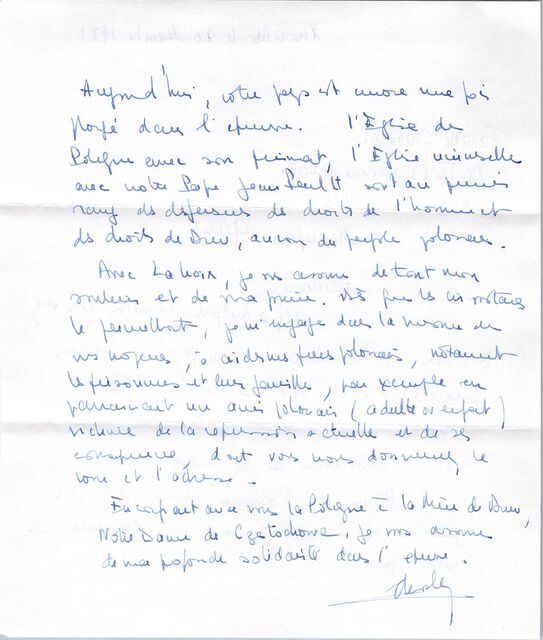 Aujourd'hui, votre pays est encore une fois
plongé dans l'épreuve. l'Eglise de
Pologne avec son primat, l'Eglise universelle
avec notre Pape Jean Paul II sont au premier
rang des défenseurs des droits de l'homme et
des droits de Dieu, au cœur du peuple polonais.
Avec Lahoix, je vous assure de tout mon
soutien et de ma prière. dès que les circonstances
le permettront, je m'engage dans la mesure de
mes moyens, à aider mes frères polonais, notamment
les prisonniers et leur famille, par exemple en
parrainant un ami polonais (adulte ou enfant)
victime de la répression actuelle et de ses
conséquences, dont vous nous donnerez le
nom et l'adresse.
En confiant avec vous la Pologne à la Mère de Dieu,
Notre Dame de Czestochowa, je vous assure
de ma profonde solidarité dans l'épreuve.